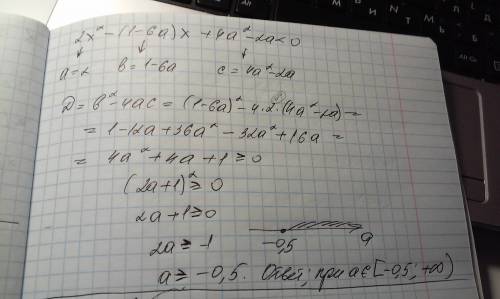 2x² - (1-6a)x + 4a² - 2a < 0
a=2 b=1-6a c=4a²-2a
D = b² - 4ac = (1-6a)² - 4·2·(4a²-2a) =
= 1-12a+36a² - 32a² + 16a =
= 4a² + 4a + 1 ≥ 0
(2a+1)² ≥ 0
2a+1 ≥ 0
2a ≥ -1
-0,5 a
a ≥ -0,5. Ответ; при a∈[-0,5; +∞)